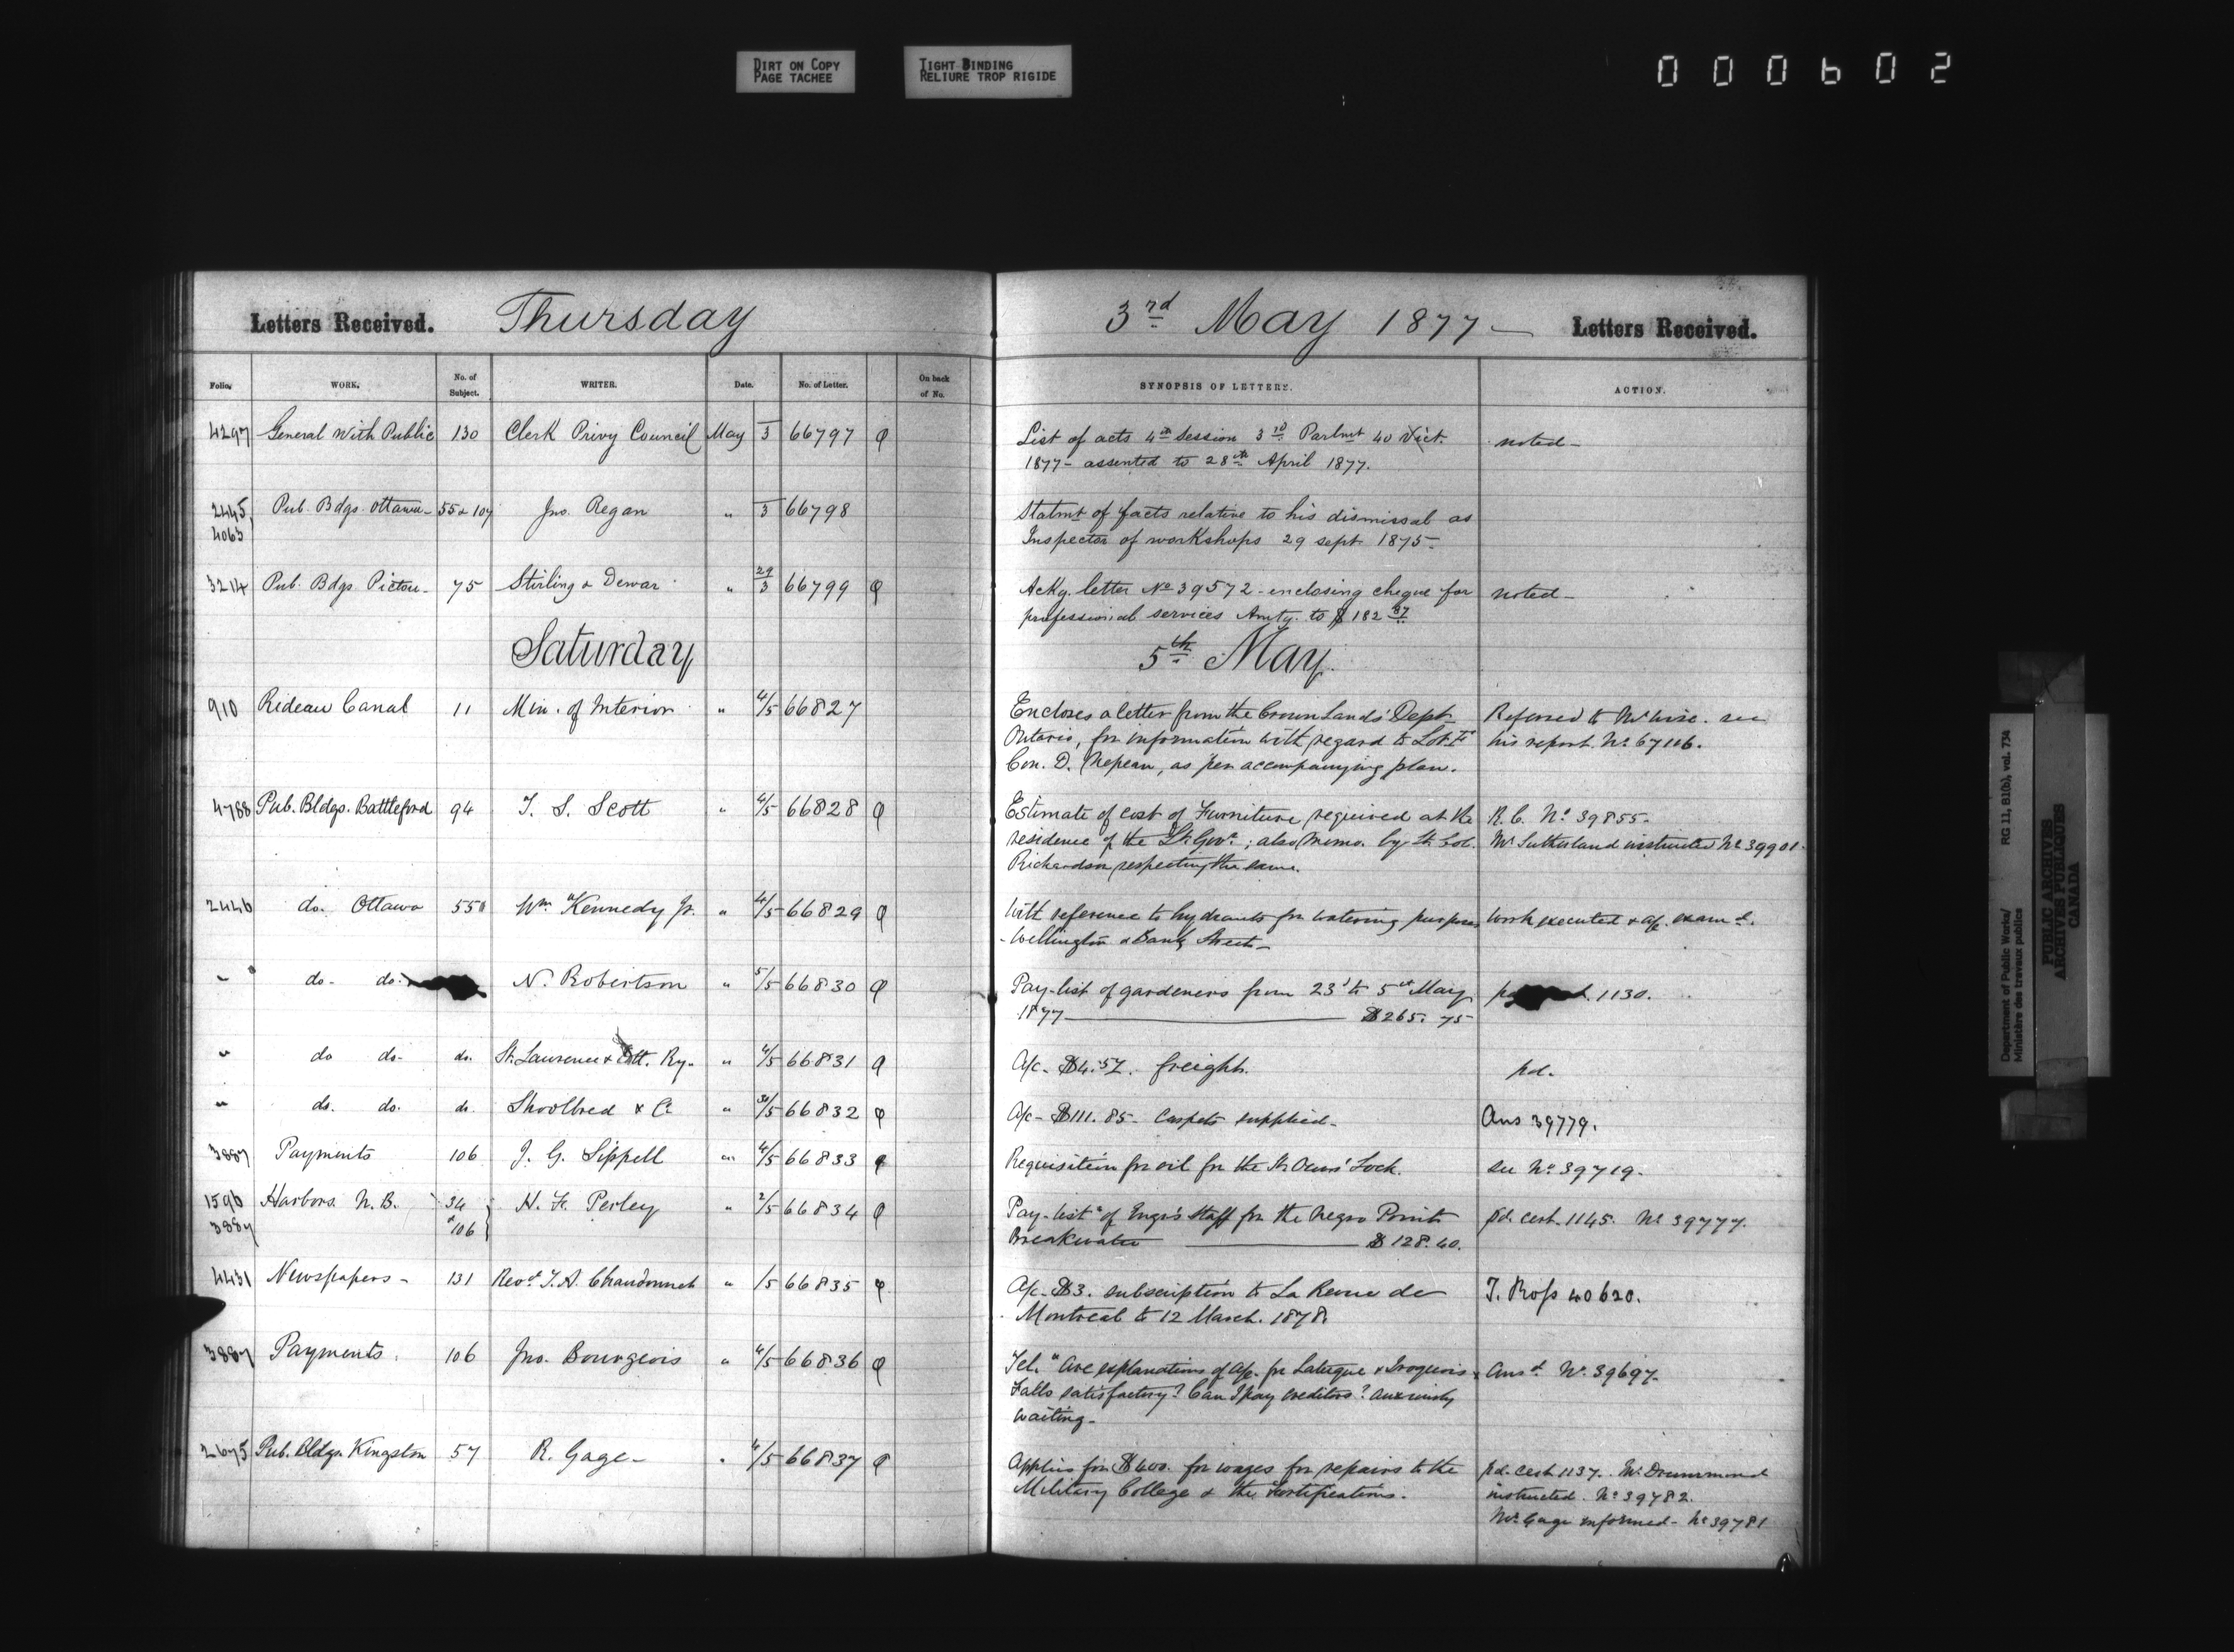 DIRT ON COPY
PAGE TACHEE
TIGHT BINDING
RELIURE TROP RIGIDE
000602
Letters Received. Thursday 3rd May 1877 — Letters Received.
Folio. WORK. No. of Subject. WRITER. Date. No. of Letter. On back of No. SYNOPSIS OF LETTERS. ACTION.
4297 General With Public 130 Clerk Privy Council May 3 66797 List of acts 4th Session 3rd Parlmt 40 Vict. noted —
1877 - assented to 28th April 1877.
2445, Pub. Bdgs. Ottawa - 55 & 107 Jno. Regan " 3 66798 Statmt of facts relative to his dismissal as
4063 Inspector of workshops 29 sept. 1875 -
3214 Pub. Bdgs. Pictou - 75 Stirling & Dewar " 29/3 66799 Ackg. letter No 39572 - enclosing cheque for noted —
professional services Amtg. to $182.37
Saturday 5th May.
910 Rideau Canal 11 Min. of Interior " 4/5 66827 Encloses a letter from the Crown Lands' Dept. Referred to Mr Wise. see
Ontario, for information with regard to Lot F his report. No 67106.
Con. D. Nepean, as per accompanying plan.
4788 Pub. Bldgs. Battleford 94 T. S. Scott " 4/5 66828 Estimate of cost of Furniture required at the R. C. No 39855.
residence of the Lt. Govr.; also memo. by Lt. Col. Mr Sutherland instructed No 39901.
Richardson respecting the same.
2446 do. Ottawa 55 Wm Kennedy Jr. " 4/5 66829 With reference to hydrants for watering purposes Work executed & a/c. examd.
- Wellington & Bank Streets -
" do. do. N. Robertson " 5/5 66830 Pay-list of gardeners from 23d to 5th May 1130.
1877 — $265.75
" do do. do. St. Lawrence & Ott. Ry. " 4/5 66831 A/c - $4.57. freight. pd.
" do. do. do. Shoolbred & Co " 66832 A/c - $111.85. Carpets supplied - Ans 39779.
3887 Payments 106 J. G. Sippell " 4/5 66833 Requisition for oil for the St Ours' Lock. see No 39719.
1596 Harbors. N.B. 34 H. F. Perley " 2/5 66834 Pay-list of Engr's staff for the Negro Point pd. cert. 1145. No 39777.
3887 & 106 Breakwater — $128.60.
4431 Newspapers - 131 Revd. T. A. Chandonnet " /5 66835 A/c - $3. subscription to La Revue de T. Ross 40620.
Montreal to 12 March. 1878.
3887 Payments. 106 Jno. Bourgeois " 4/5 66836 Tel. "Are explanations of a/c. for Latuque & Iroquois Ansd. No. 39697.
Falls satisfactory? Can I pay creditors? anxiously
waiting -
2675 Pub. Bldgs. Kingston 57 R. Gage - " 4/5 66837 Applies for $400. for wages for repairs to the pd. cert. 1137. Mr Drummond
Military College & the fortifications. instructed. No 39782.
Mr Gage informed - No 39781
Department of Public Works/ RG 11, B1(b), vol. 734
Ministère des travaux publics
PUBLIC ARCHIVES
ARCHIVES PUBLIQUES
CANADA